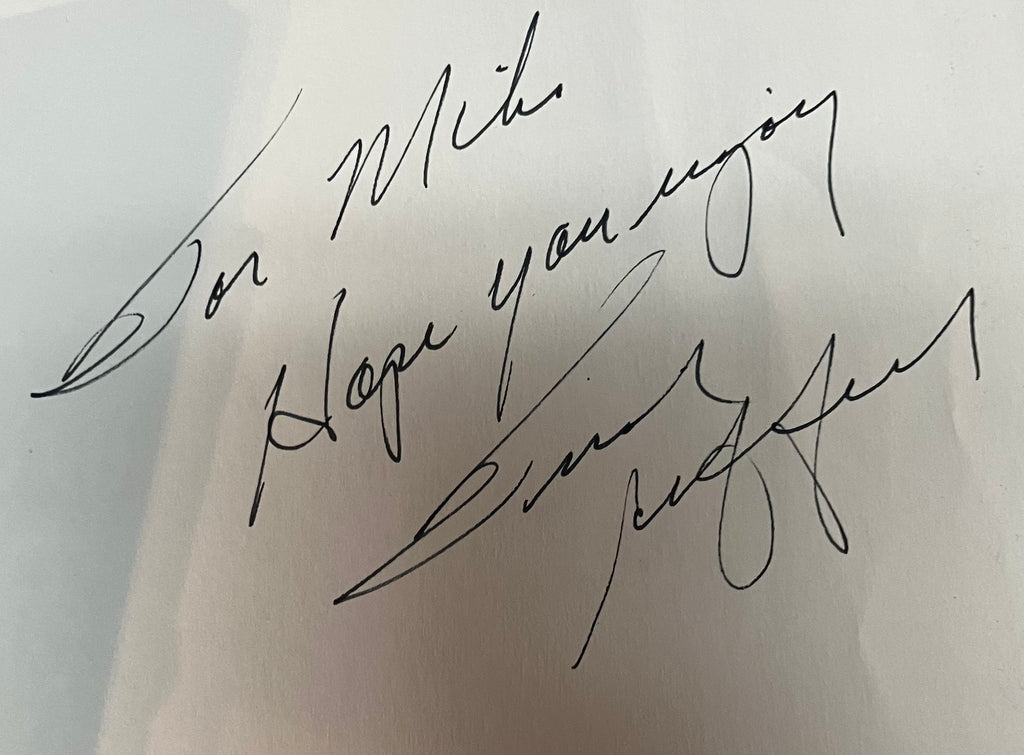 For Mike
Hope you enjoy